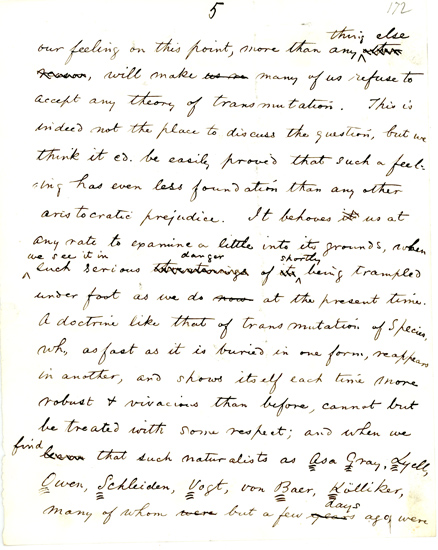 5
172
thing else
our feeling on this point, more than any other
reason, will make us no many of us refuse to
accept any theory of transmutation. This is
indeed not the place to discuss the question, but we
think it cd. be easily proved that such a feel-
-ing has even less foundation than any other
aristocratic prejudice. It behoves it us at
any rate to examine a little into its grounds, when
we see it in danger shortly
such serious threatenings of its being trampled
under foot as we do now at the present time.
A doctrine like that of transmutation of Species,
wh, as fast as it is buried in one form, reappears
in another, and shows itself each time more
robust & vivacious than before, cannot but
be treated with some respect; and when we
find
learn that such naturalists as Asa Gray, Lyell,
Owen, Schleiden, Vogt, von Baer, Kölliker,
days
many of whom were but a few years ago were